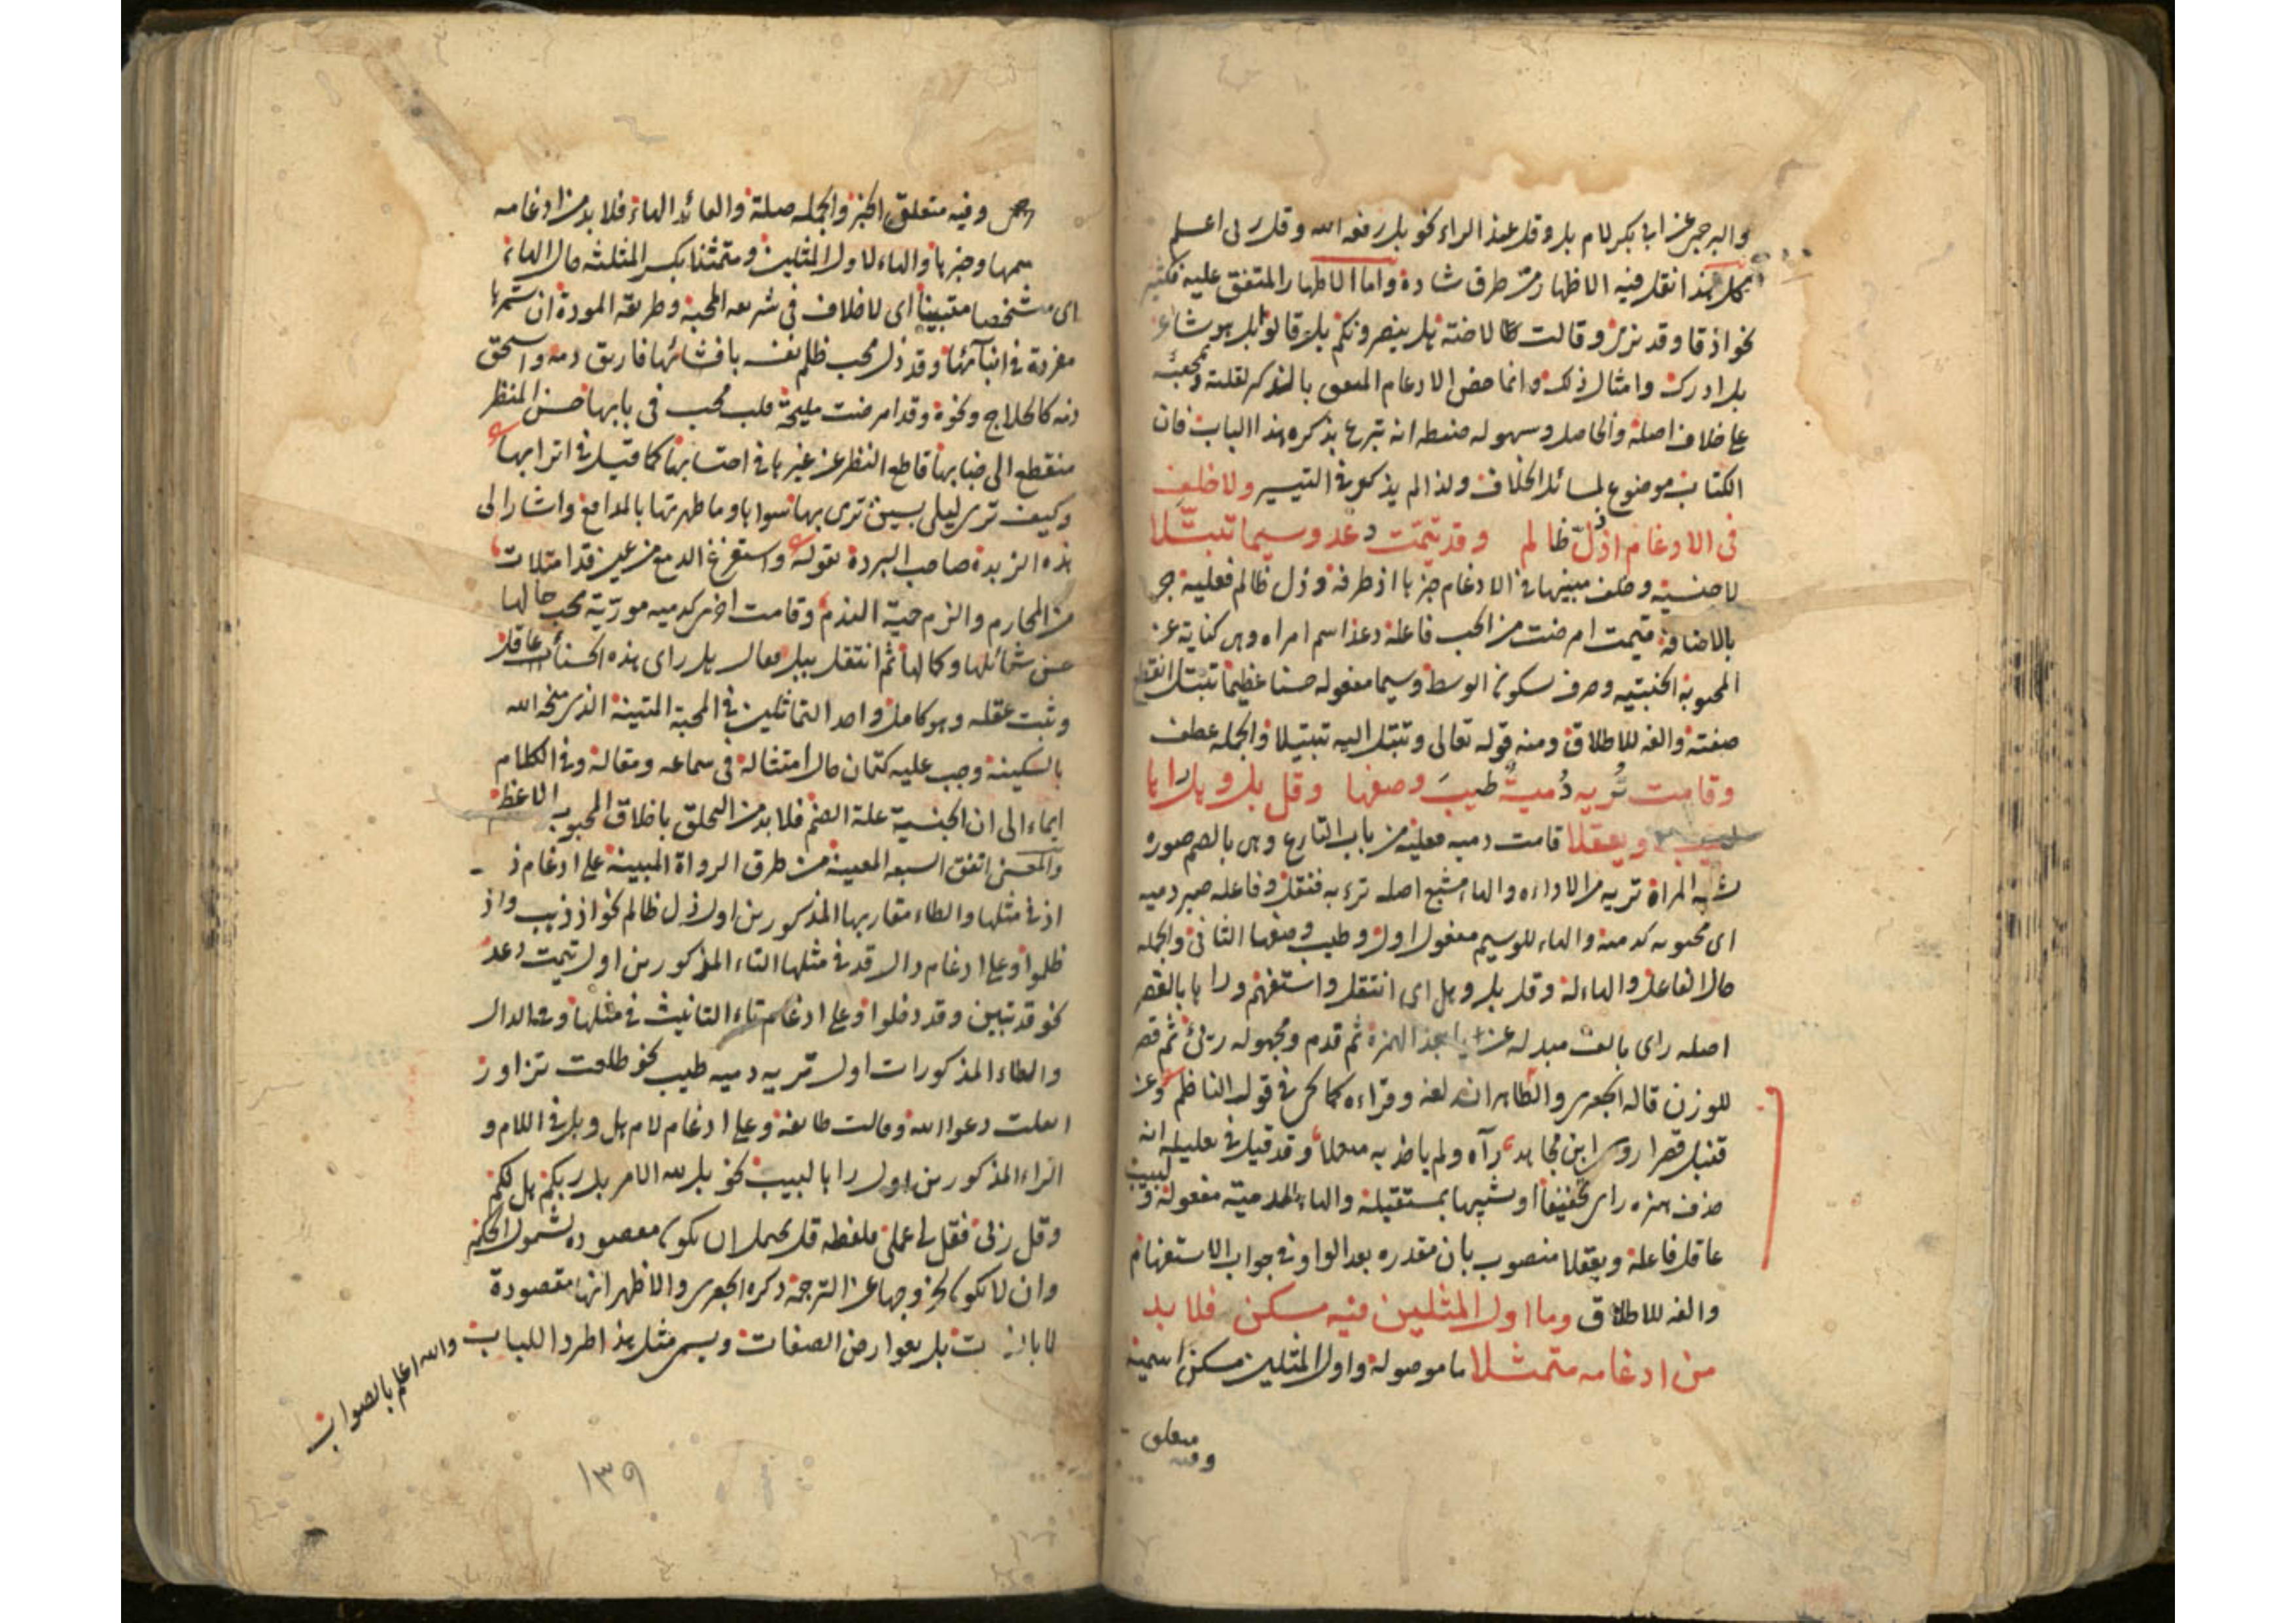 والبرجمي عن ابي بكر لام بل وقل عند الراء نحو بل رفعه الله وقل ربي اعلم
فكل هذا نقل فيه الاظهار من طرق شاذة واما الاظهار المتفق عليه فكثير
نحو اذ قا وقد نرى وقالت طا لا ضنة بل ينصرونكم بل قالوا بل هو شاعر
بل ادرك وامثال ذلك وانما خص الادغام المتفق بالذكر لقلته ومجيئه
على خلاف اصله والحاصل وسهوله ضبطه انه تبرع بذكره هذا الباب فان
الكتاب موضوع لمسائل الخلاف ولذا لم يذكره في التيسير ولا خلف
في الادغام اذ ذل ظالم وقد تيمت دعد وسيما تبتلا
لا جنسية وخلف مبنيها في الادغام خبرها اذ ظرفه وذل ظالم فعلية جر
بالاضافة تيمت امرضت من الحب فاعله دعد اسم امراه وهى كناية عن
المحبوبة الجنبتيه وصرف سكونه الوسط وسيما مفعوله حسنا عظيما تبتل انقطع
صفته والفه للاطلاق ومنه قوله تعالى وتبتل اليه تبتيلا والجمله عطف
وقامت تريه دمية طيب وصفها وقل بل وهل راها
لبيب ويعقلا قامت دميه فعلية من باب التنازع وهى بالضم صوره
شبه المراة تريه من الاراءه والهاء مشبع اصله ترءيه فنقل وفاعله ضمير دميه
اى محبوبه كدميه والهاء للوسيم مفعول اول وطيب وصفها الثاني والجمله
حال الفاعل والهاء له وقل بل وهل اى انتقل واستفهم وراها بالقصر
اصله راى بالف مبدله عن يا بعد الهمزة ثم قدم ومجهوله رئى ثم قصر
للوزن قاله الجعبرى والظاهر انه لغه وقراءه كما في قول الناظم وعن
قنبل قصرا روى ابن مجاهد رآه ولم ياخذ به متعملا وقد قيل في تعليله انه
حذف همزه راى تخفيفا او شبيها بمستقبله والهاء للدمية مفعوله ولبيب
عاقل فاعله ويعقلا منصوب بان مقدره بعد الواو في جواب الاستفهام
والفه للاطلاق وما اول المثلين فيه مسكن فلا بد
من ادغامه متمثلا ما موصولة واول المثلين مسكن اسمية
وفيه متعلق
وفيه متعلق الخبر والجمله صلة والعائد الهاء فلا بد من ادغامه
سمها وخبرها والهاء لاول المثلين ومتمثلا بكسر المثلثه حال الهاء
اى مشخصا متبينا اى لا خلاف في شريعه المحبة وطريقه المودة ان ثمرها
مفردة في انبائها وقد ذل محب ظلم نفسه بافشائها فاريق دمه واستحق
ذمه كالحلاج ونحوه وقد امرضت مليحة قلب محب في بابها حسن المنظر
منقطع الى جنابها قاطع النظر عن غيرها في احتسابها كما قيل في اترابها
وكيف ترى ليلى بعين ترى بها سواها وما طهرتها بالمدامع واشار الى
هذه الزبدة صاحب البردة بقوله واستفرغ الدمع من عين قد امتلات
من المحارم والزم حمية الندم وقامت اخرى كدميه مورثة محب جمالها
حسن شمائلها وكمالها ثم انتقل ببل فقال هل راى هذه الحسناء عاقل
وثبت عقله وهو كامل واحد المتماثلين في المحبة المتينة الذى منحه الله
بالسكينة وجب عليه كتمان حاله امتثاله في سماعه ومقاله وفي الكلام
ايماء الى ان الجنسية علة الضم فلا بد من التخلق باخلاق المحبوب الاعظم
والمعنى اتفق السبعه المعينة من طرق الرواة المبينة على ادغام ذ
اذ في مثلها والظاء مقاربها المذكورين اول ذل ظالم نحو اذ ذهب واذ
ظلموا وعلى ادغام دال قد في مثلها التاء المذكورين اول تيمت دعد
نحو قد تبين وقد دخلوا وعلى ادغام تاء التانيث في مثلها وفي الدال
والطاء المذكورات اول تريه دميه طيب نحو طلعت تزاور
اثقلت دعوا الله وقالت طائفة وعلى ادغام لام هل وبل في اللام و
الراء المذكورين اول راها لبيب نحو بل لله الامر بل ربكم هل لكم
وقل ربى فقل لى عملى ملفظه قل يحتمل ان يكون مقصوده لشمول الحكم
وان لا يكون لخروجها عن الترجمة ذكره الجعبرى والاظهر انها مقصودة
لا بالذات بل بعوارض الصفات ويسمى مثل هذا اطرد اللباب والله اعلم بالصواب
١٣٩